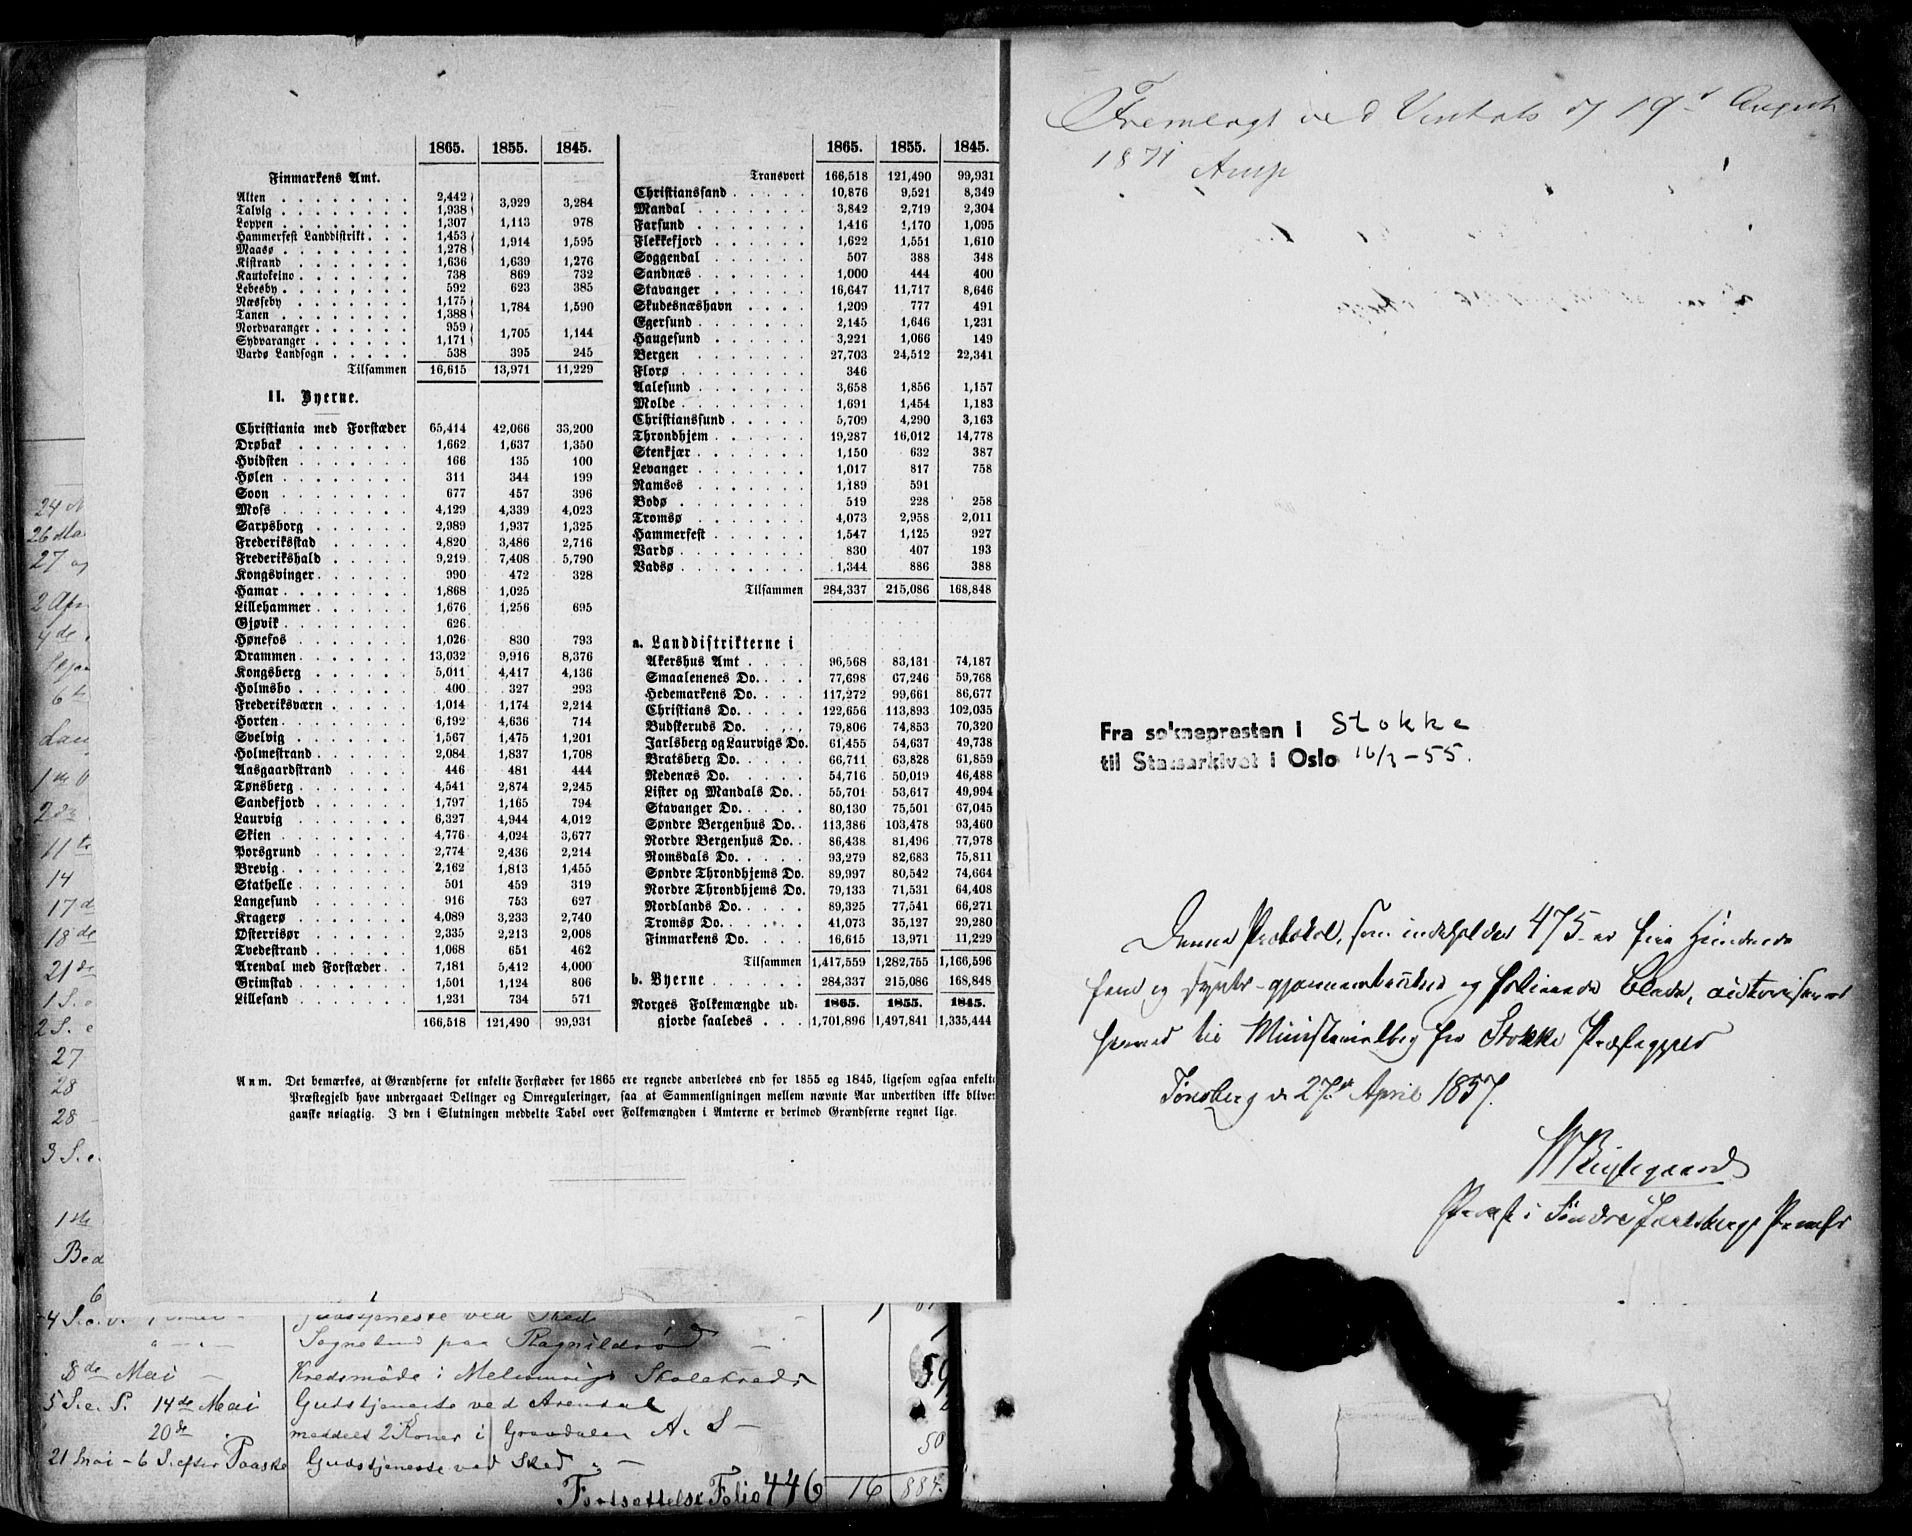 1865. 1855. 1845.
Finmarkens Amt.
Alten 2,442 3,929 3,284
Talvig 1,938
Loppen 1,307 1,113 978
Hammerfest Landdistrikt 1,453 1,914 1,595
Maasø 1,278
Kistrand 1,636 1,639 1,276
Kautokeino 738 869 732
Lebesby 592 623 385
Næsseby 1,175 1,784 1,590
Tanen 1,388
Nordvaranger 959 1,705 1,144
Sydvaranger 1,171
Vardø Landsogn 538 395 245
Tilsammen 16,615 13,971 11,229
II. Byerne.
Christiania med Forstæder 65,414 42,066 33,200
Drøbak 1,662 1,637 1,350
Hvidsten 166 135 100
Hølen 311 344 199
Soon 677 457 396
Moss 4,129 4,339 4,023
Sarpsborg 2,989 1,937 1,325
Frederiksstad 4,820 3,486 2,716
Frederikshald 9,219 7,408 5,790
Kongsvinger 990 472 328
Hamar 1,868 1,025
Lillehammer 1,676 1,256 695
Gjøvik 626
Hønefos 1,026 830 793
Drammen 13,032 9,916 8,376
Kongsberg 5,011 4,417 4,136
Holmsbo 400 327 293
Frederiksværn 1,014 1,174 2,214
Horten 6,192 4,636 714
Svelvig 1,567 1,475 1,201
Holmestrand 2,084 1,837 1,708
Aasgaardstrand 446 481 444
Tønsberg 4,541 2,874 2,245
Sandefjord 1,797 1,165 794
Laurvig 6,327 4,944 4,012
Skien 4,776 4,024 3,677
Porsgrund 2,774 2,436 2,214
Brevig 2,162 1,813 1,455
Stathelle 501 459 319
Langesund 916 753 627
Kragerø 4,089 3,233 2,740
Østerrisør 2,335 2,213 2,008
Tvedestrand 1,068 651 462
Arendal med Forstæder 7,181 5,412 4,000
Grimstad 1,501 1,124 806
Lillesand 1,231 734 571
166,518 121,490 99,931
1865. 1855. 1845.
Transport 166,518 121,490 99,931
Christianssand 10,876 9,521 8,349
Mandal 3,842 2,719 2,304
Farsund 1,416 1,170 1,095
Flekkefjord 1,622 1,551 1,610
Soggendal 507 388 348
Sandnæs 1,000 444 400
Stavanger 16,647 11,717 8,646
Skudesnæshavn 1,209 777 491
Egersund 2,145 1,646 1,231
Haugesund 3,221 1,066 149
Bergen 27,703 24,512 22,341
Florø 346
Aalesund 3,658 1,856 1,157
Molde 1,691 1,454 1,183
Christianssund 5,709 4,290 3,163
Throndhjem 19,287 16,012 14,778
Stenkjær 1,150 632 387
Levanger 1,017 817 758
Namsos 1,189 591
Bodø 519 228 258
Tromsø 4,073 2,958 2,011
Hammerfest 1,547 1,125 927
Vardø 830 407 193
Vadsø 1,344 886 388
Tilsammen 284,337 215,086 168,848
a. Landdistrikterne i
Akershus Amt 96,568 83,131 74,187
Smaalenenes Do. 77,698 67,246 59,768
Hedemarkens Do. 117,272 99,661 86,677
Christians Do. 122,656 113,893 102,035
Budskeruds Do. 79,806 74,853 70,320
Jarlsberg og Laurvigs Do. 61,455 54,637 49,738
Bratsberg Do. 66,711 63,828 61,859
Nedenæs Do. 54,716 50,019 46,488
Lister og Mandals Do. 55,701 53,617 49,994
Stavanger Do. 80,130 75,501 67,045
Søndre Bergenhus Do. 113,386 103,478 93,460
Nordre Bergenhus Do. 86,438 81,496 77,978
Romsdals Do. 93,279 82,683 75,811
Søndre Throndhjems Do. 89,997 80,542 74,664
Nordre Throndhjems Do. 79,133 71,531 64,408
Nordlands Do. 89,325 77,541 66,271
Tromsø Do. 41,073 35,127 29,280
Finmarkens Do. 16,615 13,971 11,229
Tilsammen 1,417,559 1,282,755 1,166,596
b. Byerne 284,337 215,086 168,848
Norges Folkemængde ud- 1865. 1855. 1845.
gjorde saaledes 1,701,896 1,497,841 1,335,444
Anm. Det bemærkes, at Grændserne for enkelte Forstæder for 1865 ere regnede anderledes end for 1855 og 1845, ligesom ogsaa enkelte
Præstegjeld have undergaaet Delinger og Omreguleringer, saa at Sammenligningen mellem nævnte Aar undertiden ikke bliver
ganske nøiagtig. I den i Slutningen meddelte Tabel over Folkemængden i Amterne er derimod Grændserne regnet lige.
24
26 Ma
27
2 Apr
4de
6te
Lau
1ste
2de
11te
14
17de
18de
21de
1 S.
2 S. e
27
28
28
3 S. e.
1ste
Bed
6
4 S. e. Gudstjeneste ved Sked
Sognebud paa Ragnildrø
8de Mai Kredsmøde i Melsomvigs Skolekreds
5 S. e. P. 14de Mai Gudstjeneste ved Arendal
20de meddelt 2 Koner i Grevdalen A. S
21 Mai - 6 S. efter Paaske Gudstjeneste ved Sked
Fortsættelse Folio 446 16 884
Fremlagt ved Visitats d 19d August
1871
Fra soknepresten i Stokke
til Statsarkivet i Oslo 16/3-55.
Denne Protokol, som indeholder 475 er fire Hundrede
fem og syvti gjennemtrukne og folierede Blade, autoriseres
herved til Ministerialbog for Stokke Præstegjeld
Tønsberg d. 27de April 1857.
Provst i Søndre Jarlsbergs Provsti